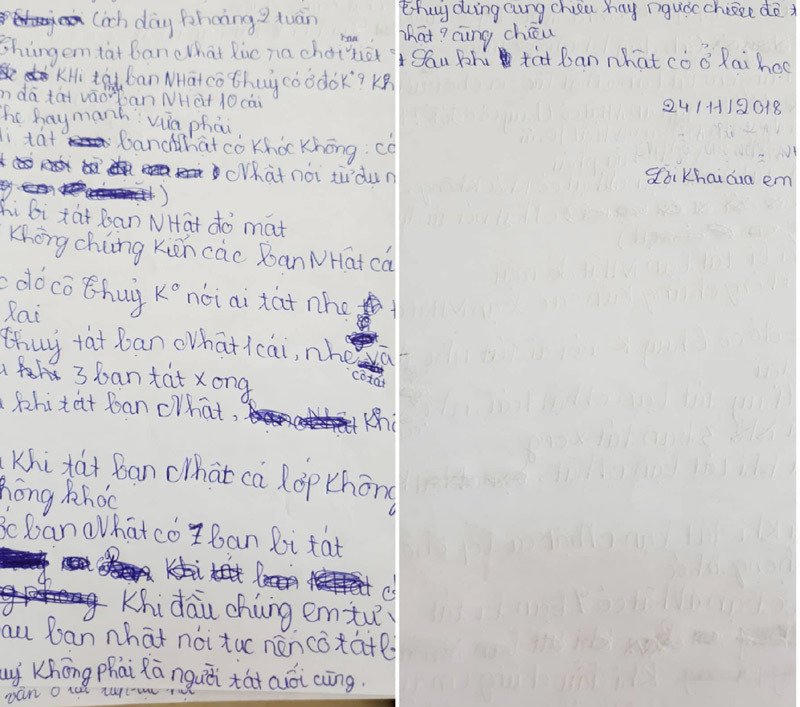 Cách đây khoảng 2 tuần
Chúng em tát bạn Nhật lúc ra chơi tiết
Khi tát bạn Nhật cô Thuỷ có ở đó K°?
đã tát vào bạn Nhật 10 cái
hay mạnh: vừa phải
tát bạn Nhật có khóc không: có
Nhật nói từ
bị tát bạn Nhật đỏ mắt
không chứng kiến các bạn Nhật
đó cô Thuỷ K° nói ai tát nhẹ
lại
Thuỷ tát bạn Nhật 1 cái, nhẹ và
cô tát
3 bạn tát xong
khi tát bạn Nhật,
Khi tát bạn Nhật cả lớp không
khóc
bạn Nhật có 7 bạn bị tát
Khi đầu chúng em tự
bạn nhật nói tục nên cô tát
không phải là người tát cuối cùng.
vẫn ở lại
Thuỷ dựng cùng chiều hay ngược chiều để
nhật? cùng chiều
+ Sau khi tát bạn nhật có ở lại học
24/11/2018
Lời khai của em